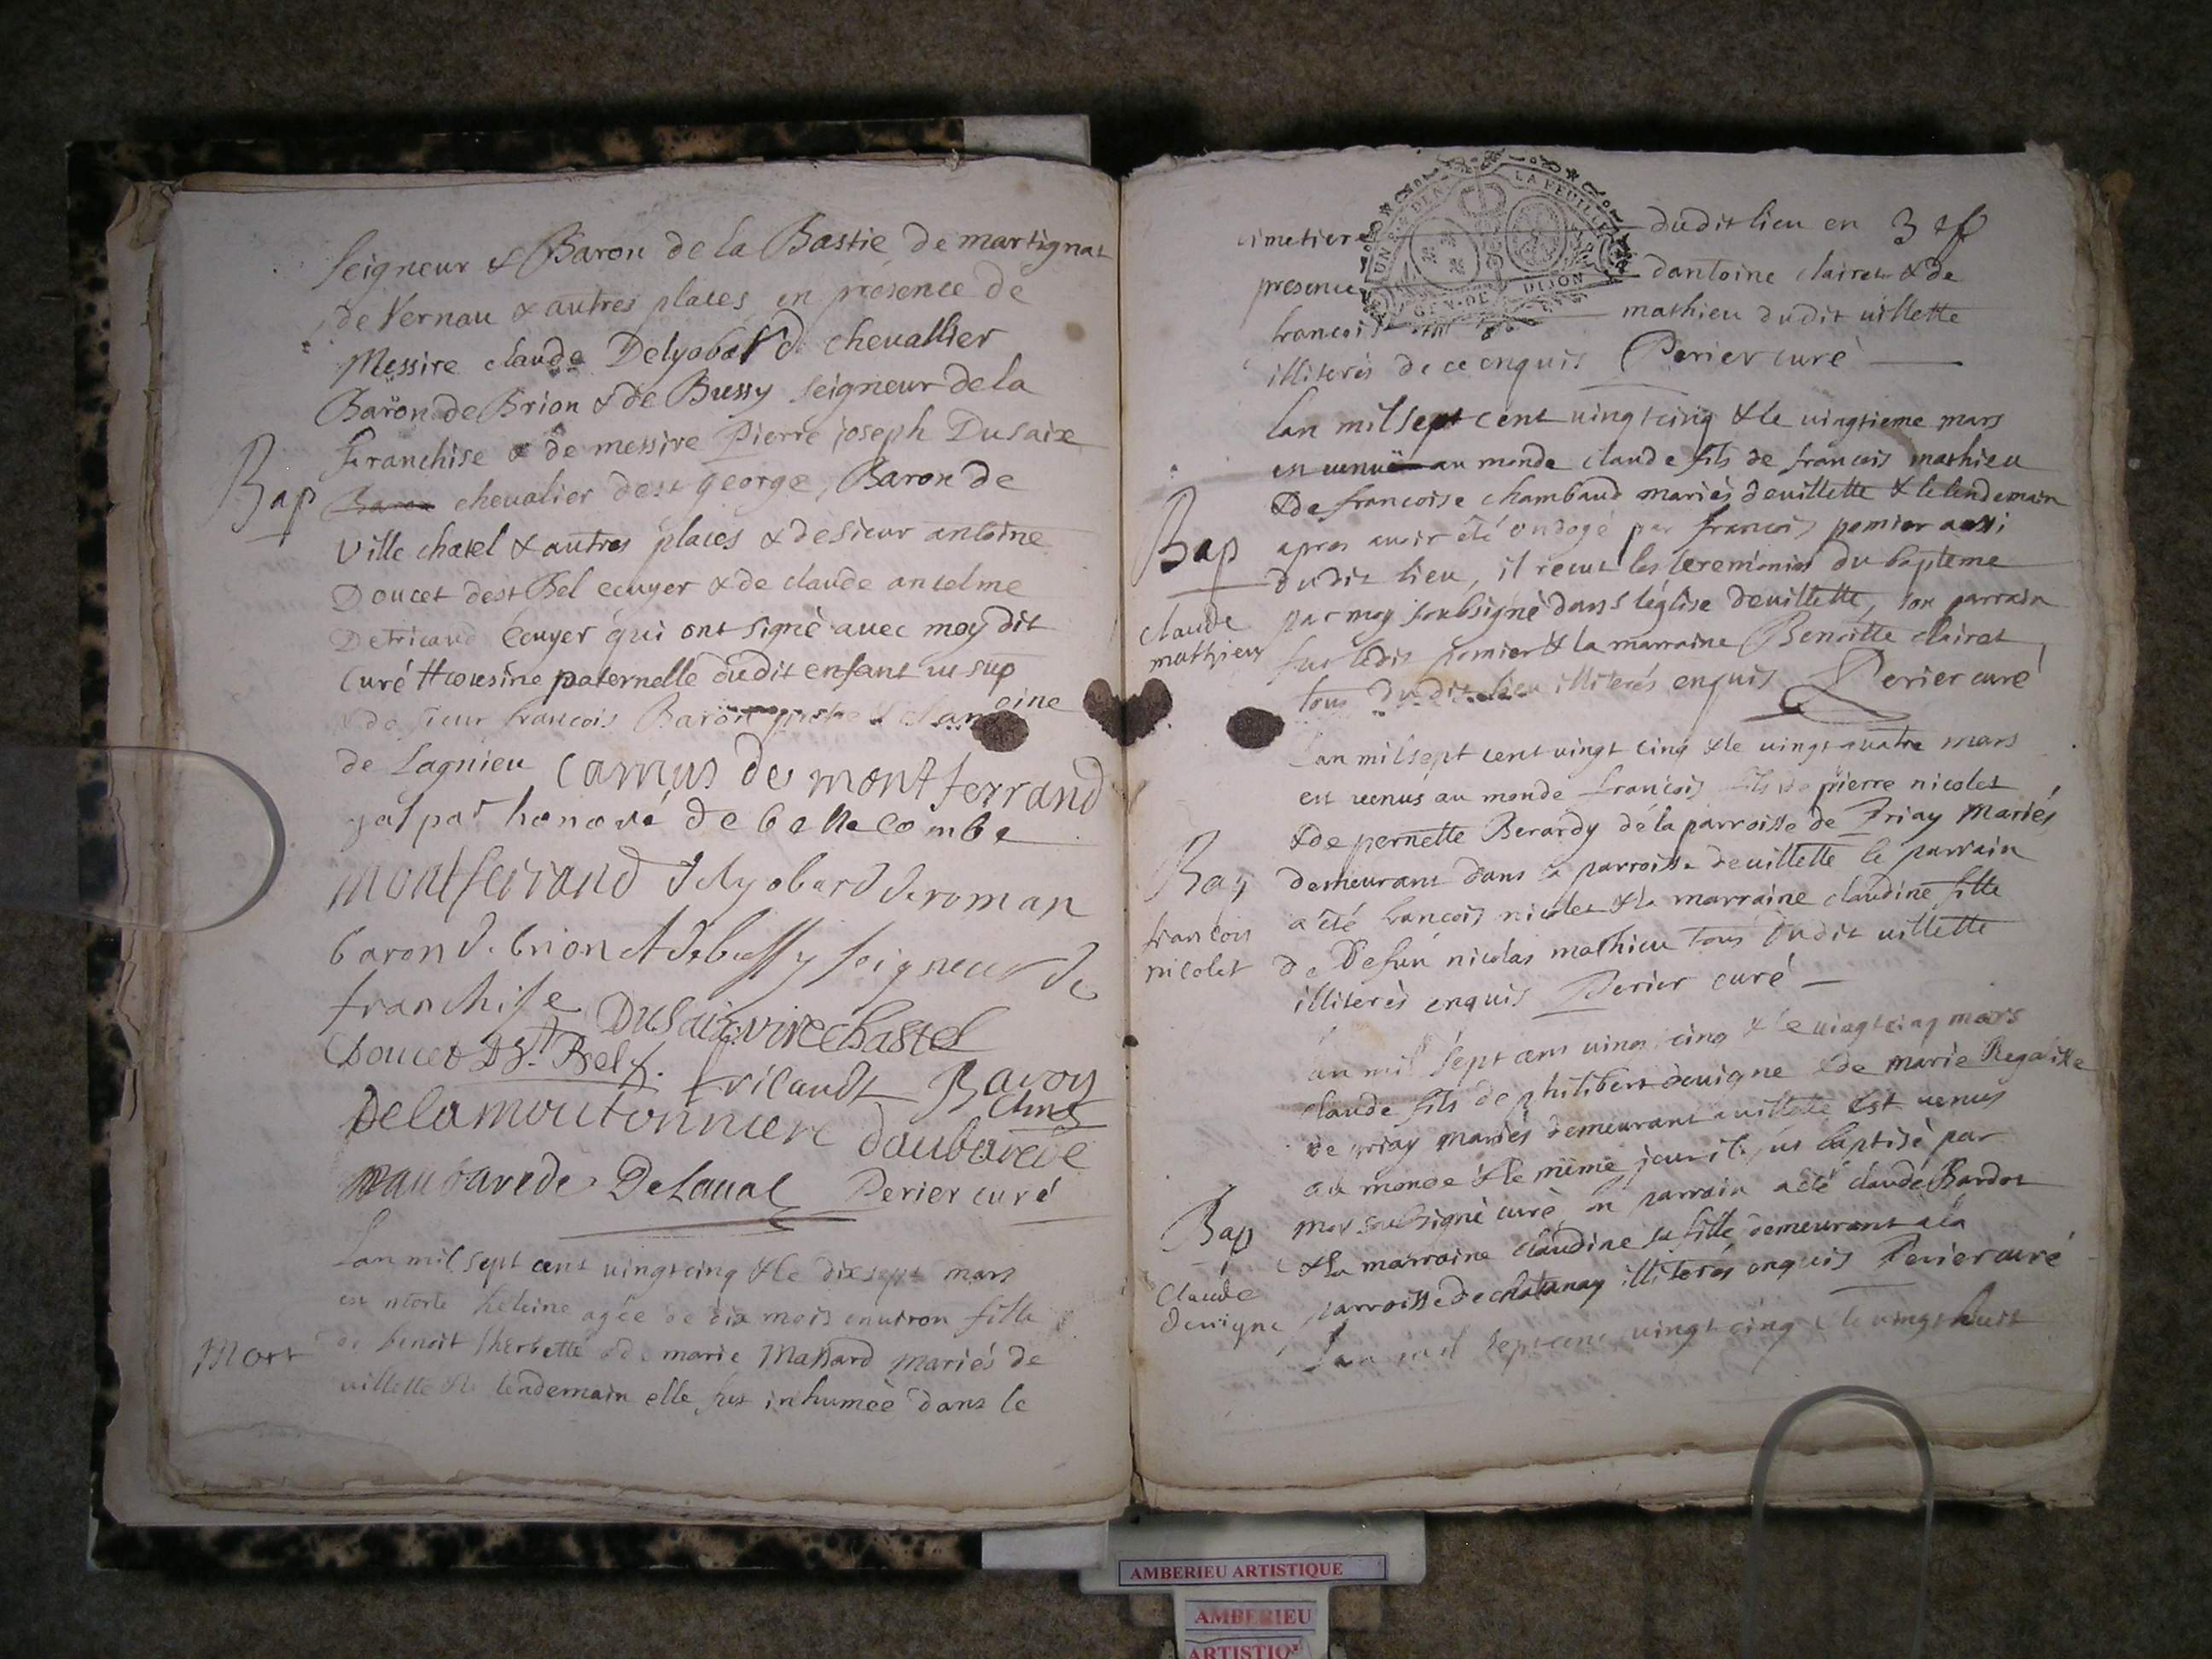 Seigneur & Baron de la Bastie de martignat
de Vernau & autres places en presence de
Messire claude Delyobard chevallier
Baron de Brion & de Bussy seigneur de la
franchise & de messire Pierre joseph Dusaix
Bap
Baron chevalier de st george, Baron de
Ville chatel & autres places & de sieur antoine
Doucet de st Bel ecuyer & de claude anselme
Detricaud Ecuyer qui ont signé avec moy dit
Curé # cousine paternelle dudit enfant ut sup
& de sieur francois Baron
de Lagnieu camus de montferrand
gaspar honoré de bellecombe
montferrand delyobard de roman
baron de brion et de bussy seigneur de
franchise Dusaix ville chastel
Doucet D St. Bel
tricaudt Baron
Delamoutonniere daubarede
daubarede Delaval Perier curé
Lan mil sept cent vingt cinq & le dix sept mars
est morte heleine agée de dix mois environ fille
Mort
de benoit lherbette & de marie Massard mariés de
villette & le lendemain elle fut inhumée dans le
cimetiere dudit lieu en 3 ef
UN DEN LA FEUILLE
GEN. DE DIJON
presence dantoine clairet & de
francois mathieu dudit villette
illiterés de ce enquis Perier curé
Lan mil sept cent vingt cinq & le vingtieme mars
est venu au monde claude fils de francois mathieu
& de francoise chambaud mariés de villette & le lendemain
Bap
apres avoir été ondogé par francois pomier aussi
dudit lieu, il recut les ceremonies du bapteme
claude
mathieu
par moy soubsigné dans léglise de villette, son parrain
fut ledit pomier & la marraine Benoitte clairet
tous dudit lieu illiterés enquis Perier curé
Lan mil sept cent vingt cinq & le vingt quatre mars
est venus au monde francois fils de pierre nicolet
& de pernette Berardy de la parroisse de Priay Mariés
Bap
demeurant dans la parroisse de villette le parrain
francois
nicolet
a été francois nicolet & la marraine claudine fille
de Defun nicolas mathieu tous dudit villette
illiterés enquis Perier curé
Lan mil sept cent vingt cinq & le vingt cinq mars
claude fils de philibert devigne & de marie
de priay mariés demeurant a villette est venus
au monde & le même jour il fut baptisé par
Bap
moy soubsigné curé son parrain a été claude Bardot
& la marraine claudine sa fille demeurant a la
Claude
devigne
parroisse de chatenay illiterés enquis Perier curé
Lan mil sept cent vingt cinq & le vingt huit
AMBERIEU ARTISTIQUE
AMBERIEU
ARTISTIQ